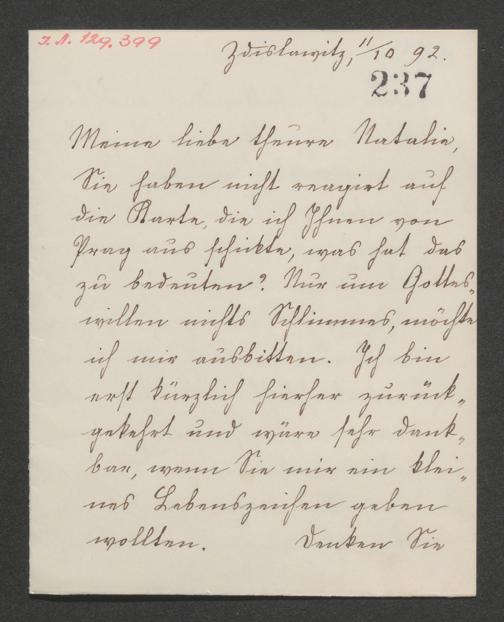 J.N. 129.399
Zdislawitz, 11/10 92.
237
Meine liebe theure Natalie,
Sie haben nicht reagirt auf
die Karte, die ich Ihnen von
Prag aus schickte, was hat das
zu bedeuten? Nur um Gottes-
willen nichts Schlimmes, möchte
ich mir ausbitten. Ich bin
erst kürzlich hierher zurück-
gekehrt und wäre sehr dank-
bar, wenn Sie mir ein klei-
nes Lebenszeichen geben
wollten. Denken Sie